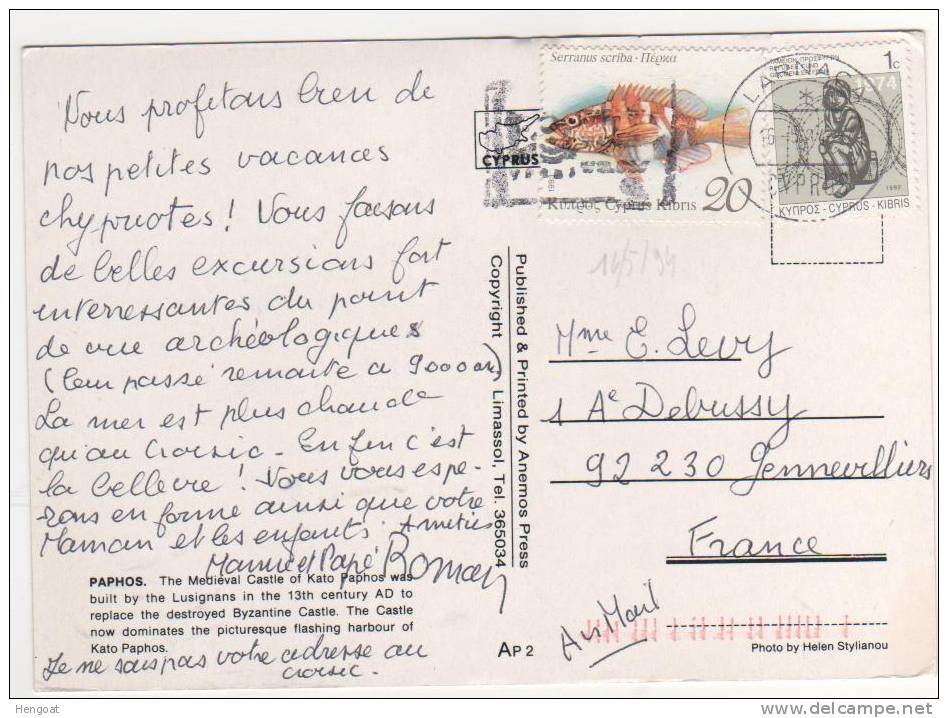 Nous profitons bien de
nos petites vacances
chypriotes ! Nous faisons
de belles excursions fort
interressantes du point
de vue archéologiques
(leur passé remonte a 9000 ans)
La mer est plus chaude
qu'au Croisic. Enfin c'est
la belle vie ! Nous vous espe-
rons en forme ainsi que votre
Maman et les enfants. Amitiés
PAPHOS. The Medieval Castle of Kato Paphos was
built by the Lusignans in the 13th century AD to
replace the destroyed Byzantine Castle. The Castle
now dominates the picturesque flashing harbour of
Kato Paphos.
Je ne sais pas votre adresse au
Croisic.
Published & Printed by Anemos Press
Copyright Limassol, Tel. 365034
AP 2
Serranus scriba · Πέρκα
Κύπρος Cyprus Kıbrıs 20
CYPRUS
1c
1974
1992
ΚΥΠΡΟΣ - CYPRUS - KIBRIS
Mme E. Levy
1 Ae Debussy
92 230 Gennevilliers
France
Air Mail
Photo by Helen Stylianou
Hengoat
delcampe.net